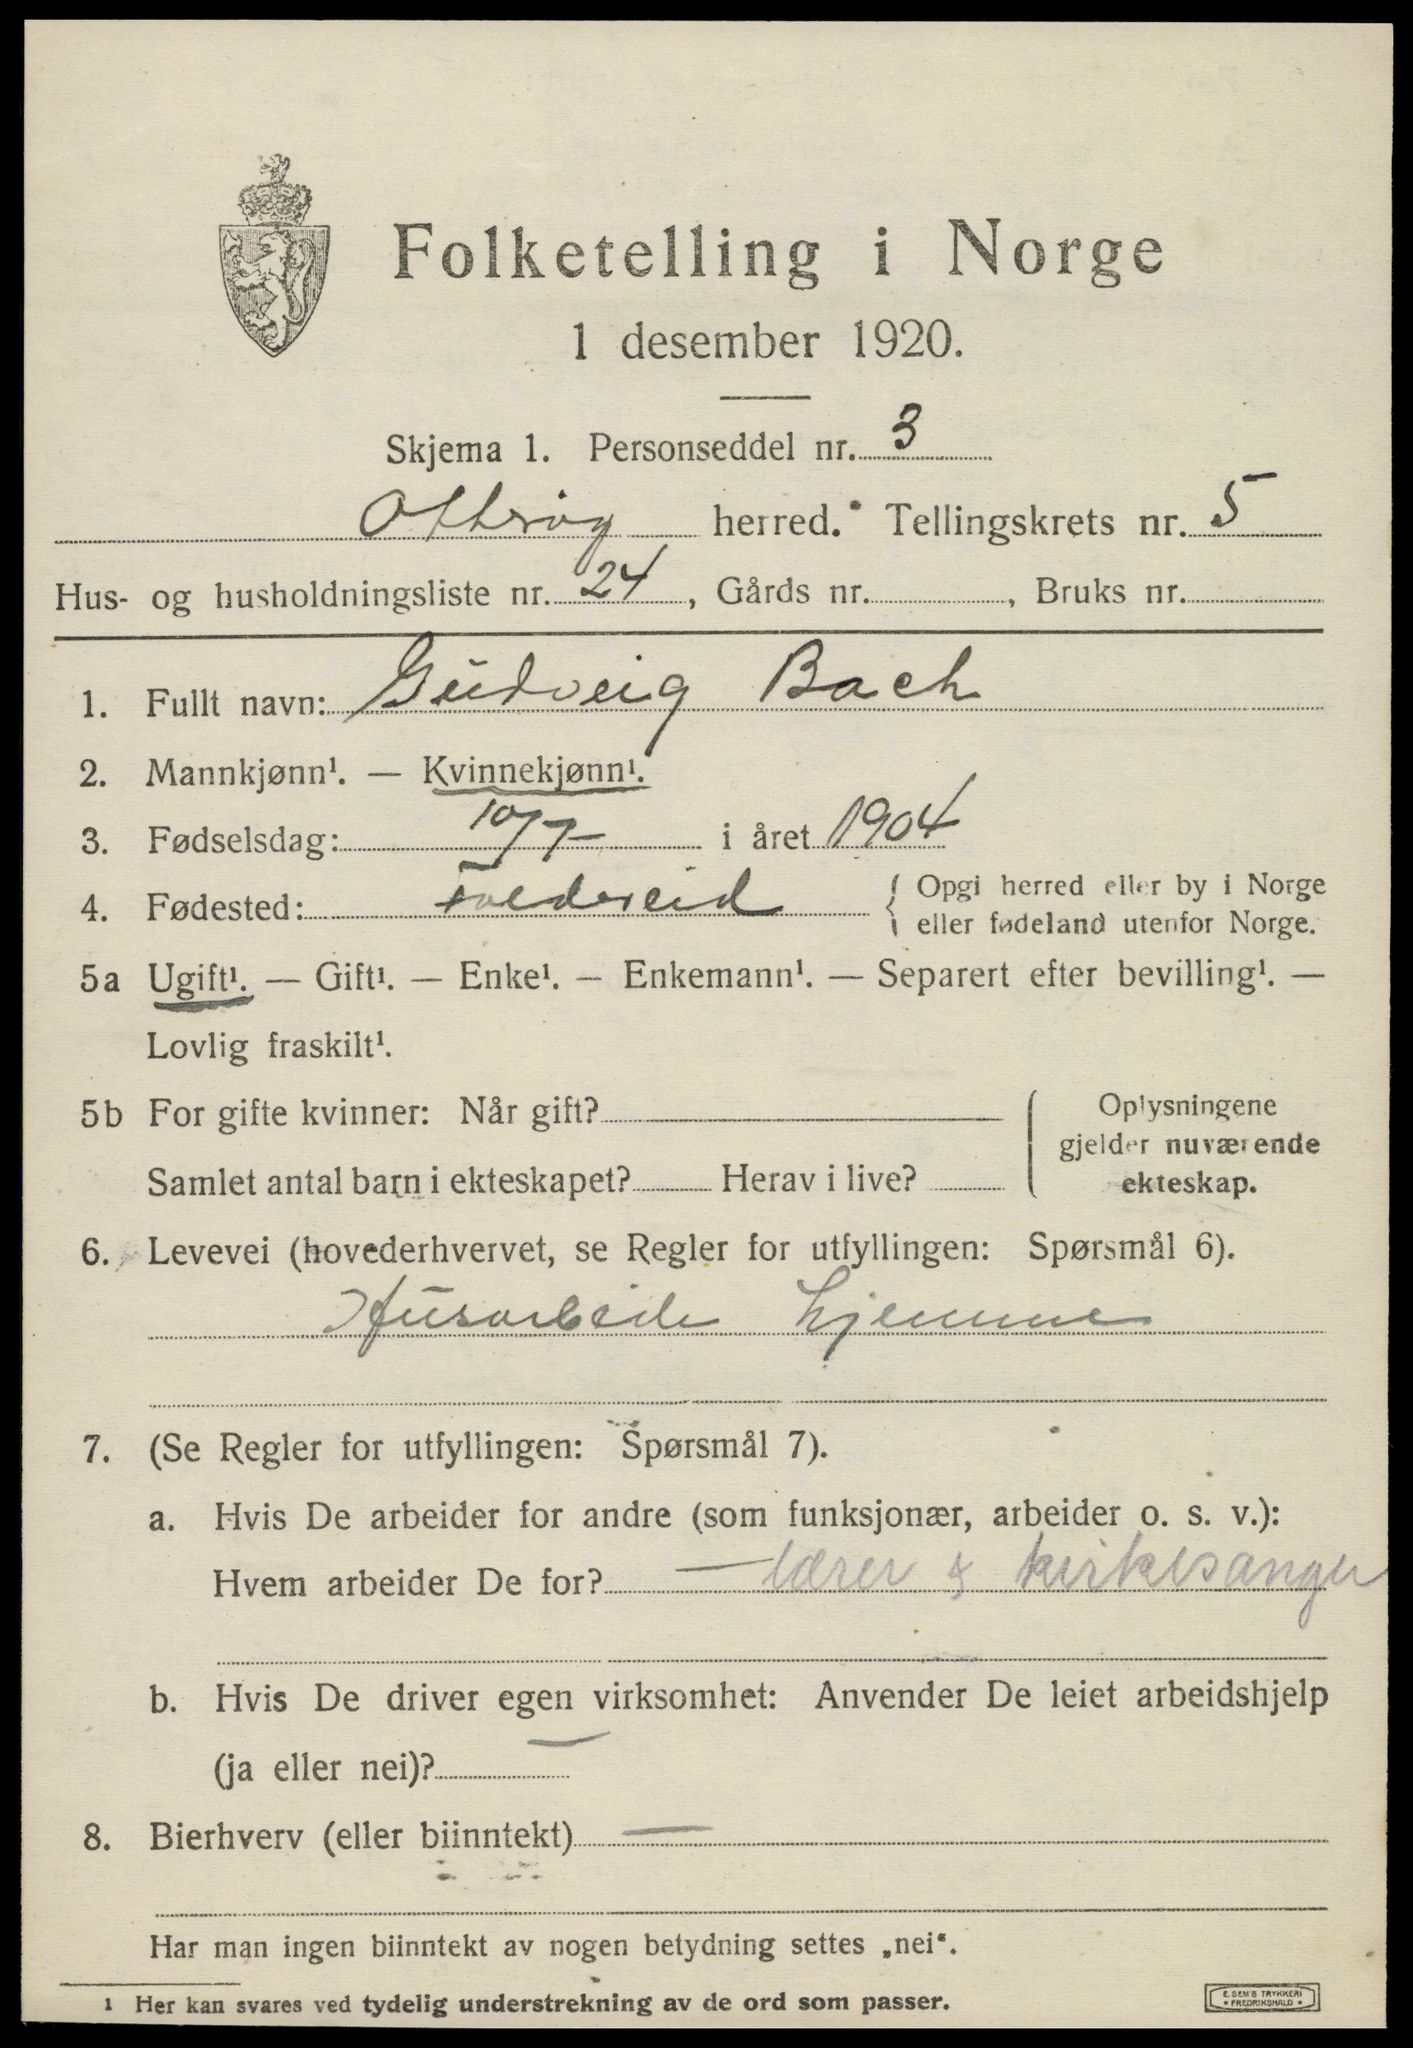 Folketelling i Norge
1 desember 1920.
Skjema 1. Personseddel nr. 3
Otterøy herred. Tellingskrets nr. 5
Hus- og husholdningsliste nr. 24, Gårds nr. , Bruks nr.
1. Fullt navn: Gudveig Bach
2. Mannkjønn¹. — Kvinnekjønn¹.
3. Fødselsdag: 10/7 i året 1904
4. Fødested: Foldereid { Opgi herred eller by i Norge
eller fødeland utenfor Norge.
5a Ugift¹. — Gift¹. — Enke¹. — Enkemann¹. — Separert efter bevilling¹. —
Lovlig fraskilt¹.
5b For gifte kvinner: Når gift? { Oplysningene
gjelder nuværende
Samlet antal barn i ekteskapet? Herav i live? ekteskap.
6. Levevei (hovederhvervet, se Regler for utfyllingen: Spørsmål 6).
Husarbeide hjemme
7. (Se Regler for utfyllingen: Spørsmål 7).
a. Hvis De arbeider for andre (som funksjonær, arbeider o. s. v.):
Hvem arbeider De for? — lærer & kirkesanger
b. Hvis De driver egen virksomhet: Anvender De leiet arbeidshjelp
(ja eller nei)? —
8. Bierhverv (eller biinntekt) —
Har man ingen biinntekt av nogen betydning settes „nei“.
1 Her kan svares ved tydelig understrekning av de ord som passer.
E. SEM'S TRYKKERI
• FREDRIKSHALD •